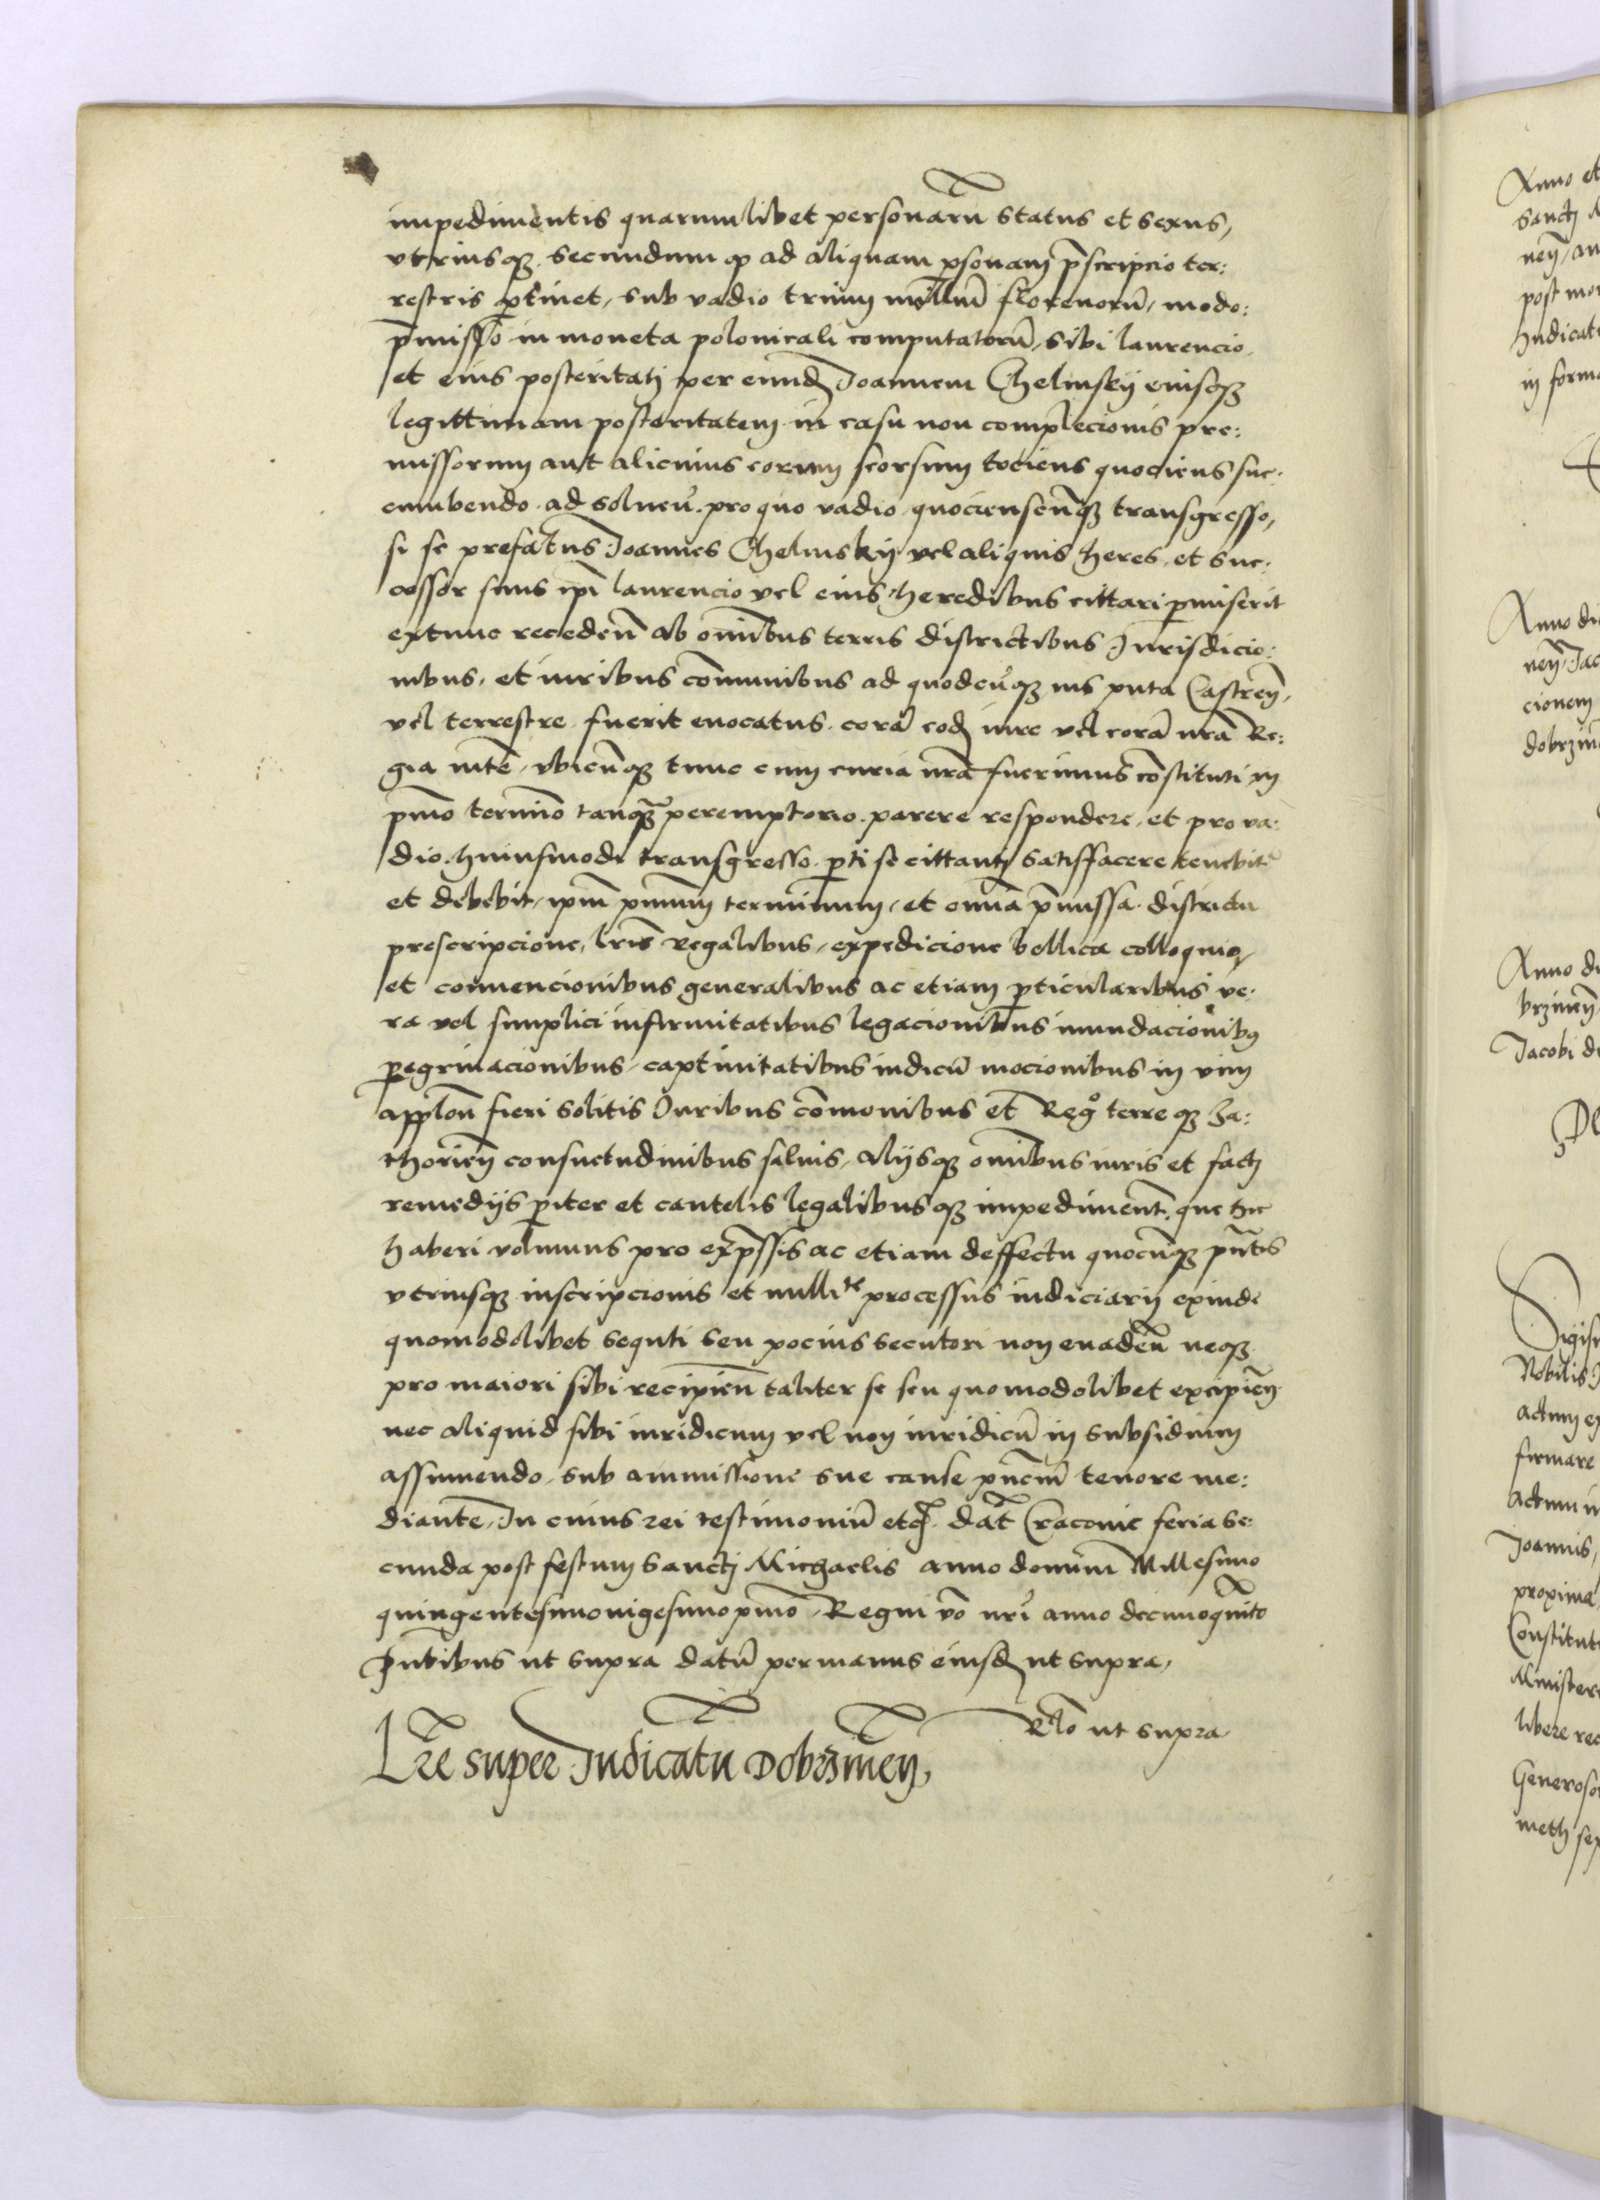 impedimentis quarumlibet personarū status et sexus,
vtriusqꝫ. secundum ꝙ ad aliquam ꝑsonam p̄scripcio ter:
restris ꝑtinet, sub vadio trium millium̄ florenorū, modo:
p̄misso in moneta polonicali computatorū, sibi laurencio,
et eius posteritati per eundꝫ Joannem Chelmskij eiusqꝫ
legittimam posteritatem in casu non complecionis pre:
missorum aut alicuius eorum seorsum tociens quociens suc.
cumbendo. ad soluen̄. pro quo vadio quocienscūqꝫ transgresso,
si se prefatus Joannes Chelmskij vel aliquis heres, et suc:
cessor suus ip̄i laurencio vel eius heredibus cittari ꝑmiserit
extunc recedeñ ab om̄ibus terris districtibus Jurisdicio:
nibus, et iuribus cōmunibus ad quodcūqꝫ ius puta Castreñ,
vel terrestre fuerit euocatus. corā eodꝫ iure vel corā nr̄a Re:
gia mt̄e, vbicūqꝫ tunc cum curia nr̄a fuerimus cōstituti in
pm̄o termino tanqꝫ peremptorio. parere respondere, et pro va:
dio. huiusmodi transgresso. ꝑti se cittanti satisffacere tenebit̄
et debebit, ip̄m pm̄um terminum, et om̄ia p̄missa. districtu
prescripcione, lr̄is regalibus, expedicione bellica colloquio,
et conuencionibus generalibus ac etiam ꝑticularibus ve.
ra vel simplici infirmitatibus legacionibus inundacionibꝰ
ꝑegrinacionibus, captiuitatibus iudicū mocionibus in vim
appl̄on̄ fieri solitis Juribus cōmonibus et Regͦ terreqꝫ Za:
thorieñ consuetudinibus saluis, alijsqꝫ om̄ibus iuris et facti
remedijs ꝑiter et cautelis legalibusqꝫ impediment. que hic
haberi volumus pro exp̄ssis ac etiam deffectu quocūqꝫ pn̄tis
vtriusqꝫ inscripcionis et nulliᵗᵉ processus iudiciarij exinde
quomodolibet sequti seu pocius secutori non euadeñ neqꝫ
pro maiori sibi recipieñ taliter se seu quomodolibet excipieñ.
nec aliquid sibi iuridicum vel non iuridicū in subsidium
assumendo, sub ammissione sue cause pn̄ciū tenore me:
diante, In cuius rei testimoniū etcꝫ. dat̄ Cracouie feria se:
cunda post festum Sancti Michaelis anno domini Millesimo
quingentesimovigesimopm̄o, Regni v̄o nr̄i anno decimoqn̄to
Pn̄tibus ut supra datū permanus eiusdꝫ ut supra,
Rl̄o ut supra
Lr̄e super Judicatū Dobrzineñ,